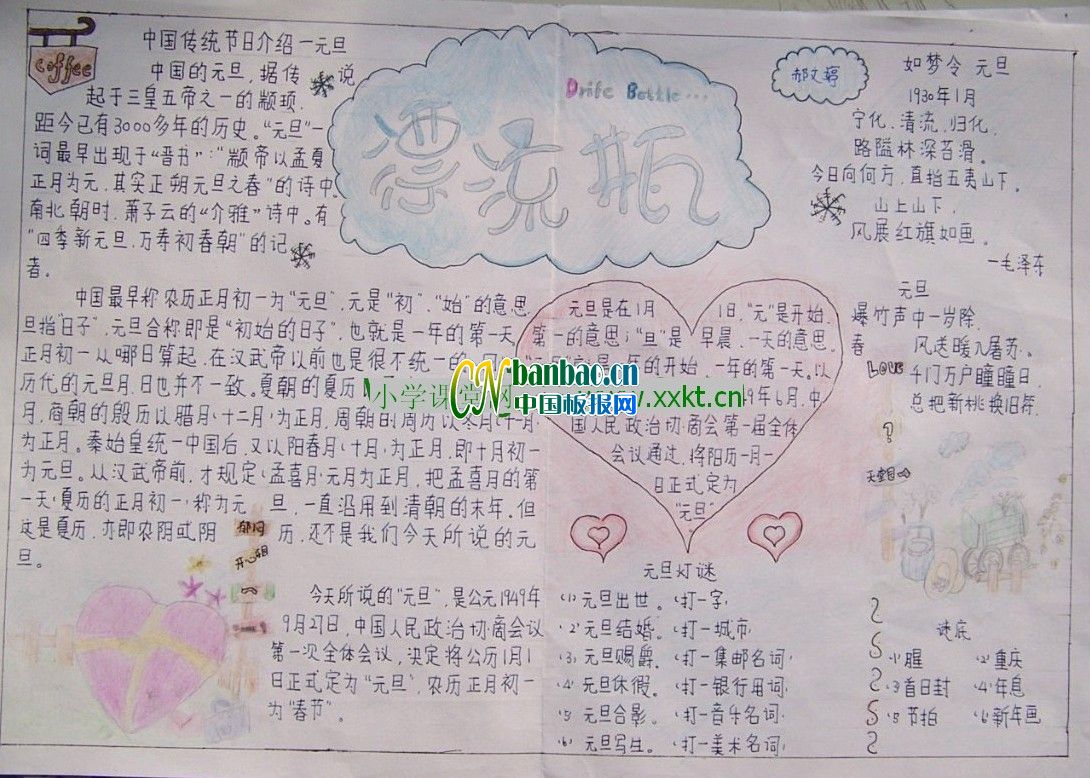 Coffee
中国传统节日介绍—元旦
中国的元旦,据传说
起于三皇五帝之一的颛顼,
距今已有3000多年的历史。“元旦”一
词最早出现于“晋书”:“颛帝以孟夏
正月为元,其实正朔元旦之春”的诗中
南北朝时,萧子云的“介雅”诗中。有
“四季新元旦,万寿初春朝”的记
者。
中国最早称农历正月初一为“元旦”,元是“初”、“始”的意思
旦指“日子”,元旦合称即是“初始的日子”,也就是一年的第一天
正月初一从哪日算起,在汉武帝以前也是很不统一的
历代的元旦月、日也并不一致。夏朝的夏历
月,商朝的殷历以腊月(十二月)为正月,周朝的周历以冬月(十一月)
为正月。秦始皇统一中国后,又以阳春月(十月)为正月,即十月初一
为元旦。从汉武帝前,才规定(孟喜月)元月为正月,把孟喜月的第
一天(夏历的正月初一)称为元旦,一直沿用到清朝的末年。但
这是夏历,亦即农阴或阴历,还不是我们今天所说的元
旦。
郁闷
开心明
今天所说的“元旦”,是公元1949年
9月27日,中国人民政治协商会议
第一次全体会议,决定将公历1月1
日正式定为“元旦”,农历正月初一
为“春节”。
Drife Bottle...
漂流瓶
元旦是在1月1日,“元”是开始,
第一的意思;“旦”是早晨,一天的意思。
年的开始,一年的第一天。以
49年6月,中
国人民政治协商会第一届全体
会议通过,将阳历一月一
日正式定为
“元旦”
CN banbao.cn
中国板报网
小学课堂网
www.xxkt.cn
元旦灯谜
(1)元旦出世。(打一字)
(2)元旦结婚。(打一城市)
(3)元旦赐爵。(打一集邮名词)
(4)元旦休假。(打一银行用词)
(5)元旦合影。(打一音乐名词)
(6)元旦写生。(打一美术名词)
郝文婷
如梦令 元旦
1930年1月
宁化、清流、归化,
路隘林深苔滑。
今日向何方,直指五夷山下。
山上山下,
风展红旗如画。
—毛泽东
元旦
爆竹声中一岁除,
春风送暖入屠苏。
千门万户瞳瞳日,
总把新桃换旧符。
Love
?
天堂
谜底
(1)腥 (2)重庆
(3)首日封 (4)年息
(5)节拍 (6)新年画